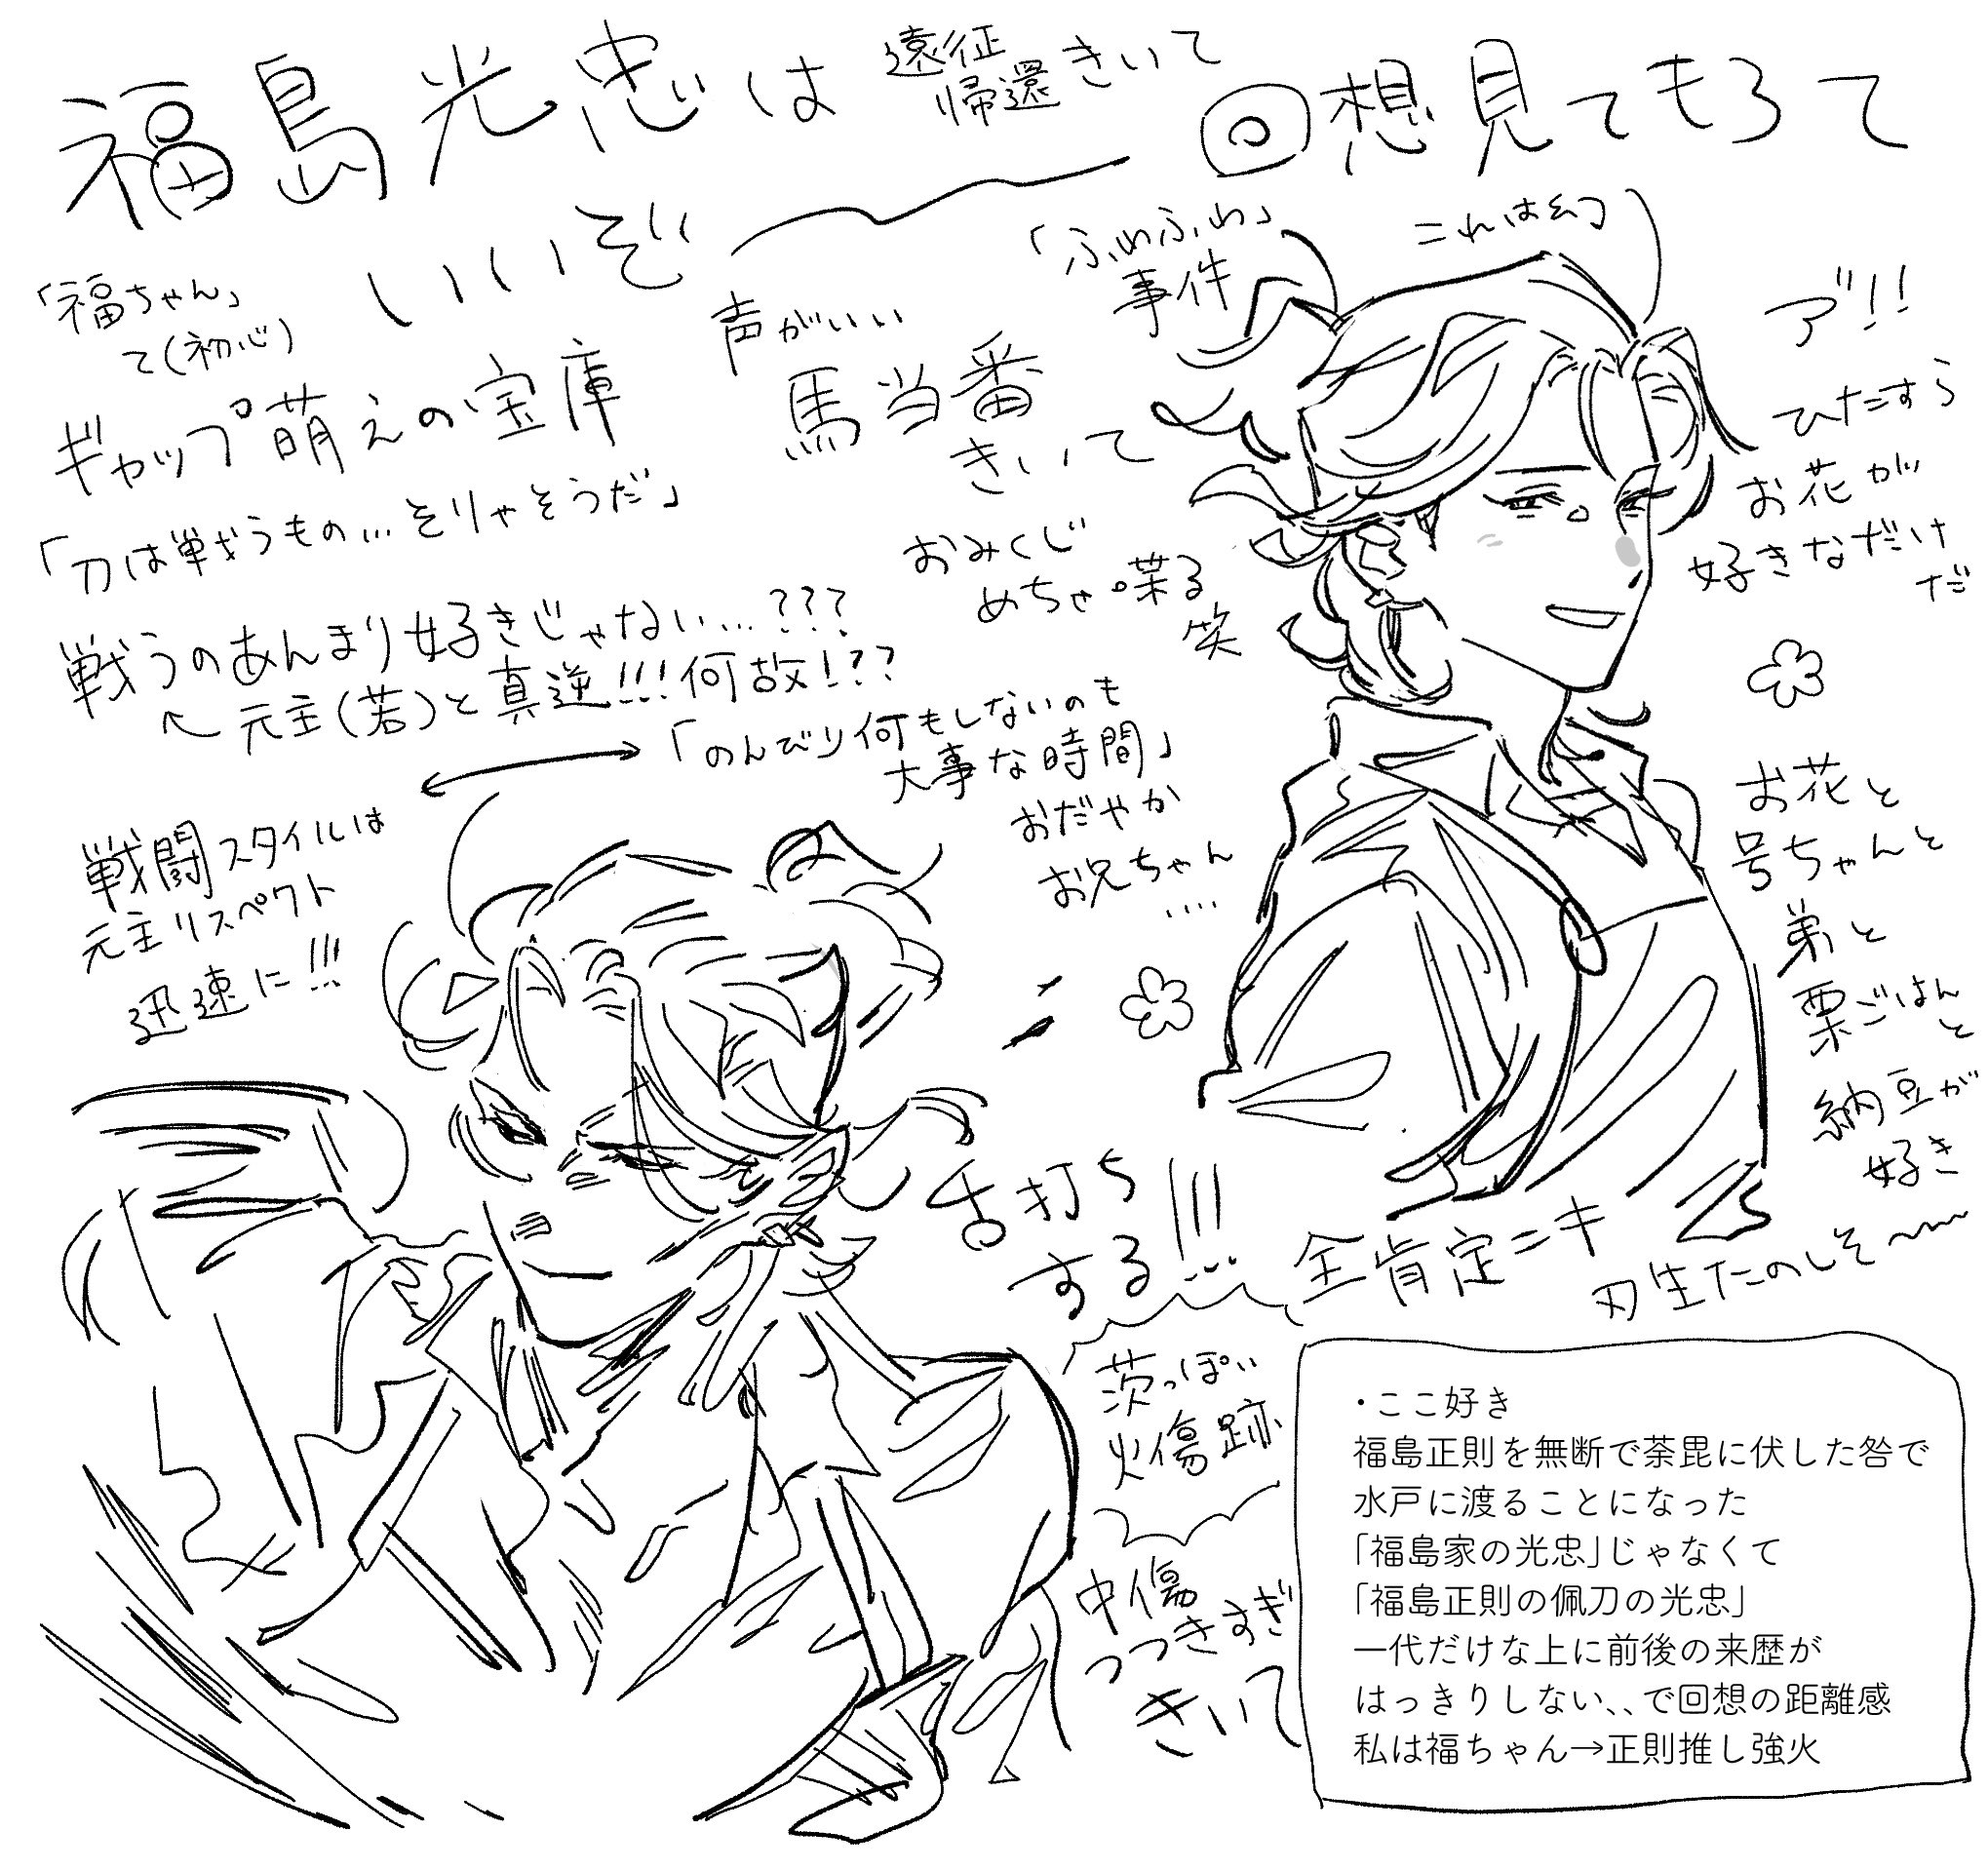 福島光忠は
いいぞ
遠征
帰還きいて
回想見てもろて
「福ちゃん」
て(初心)
ギャップ萌えの宝庫
「刀は戦うもの…そりゃそうだ」
戦うのあんまり好きじゃない…???
元主(若)と真逆!!!何故!??
声がいい
馬当番
きいて
おみくじ
めちゃ喋る
笑
「ふわふわ」
事件
これは幻
ア゛!!
ひたすら
お花が
好きなだけ
だ
「のんびり何もしないのも
大事な時間」
おだやか
お兄ちゃん
....
戦闘スタイルは
元主リスペクト
迅速に!!!
お花と
号ちゃんと
弟と
栗ごはん
と
納豆が
好き
舌打ち
する!!!...
全肯定ニキ
刃生たのしそ〜
茨っぽい
火傷跡
中傷
つつきすぎ
きいて
・ここ好き
福島正則を無断で荼毘に伏した咎で
水戸に渡ることになった
「福島家の光忠」じゃなくて
「福島正則の佩刀の光忠」
一代だけな上に前後の来歴が
はっきりしない、、で回想の距離感
私は福ちゃん→正則推し強火